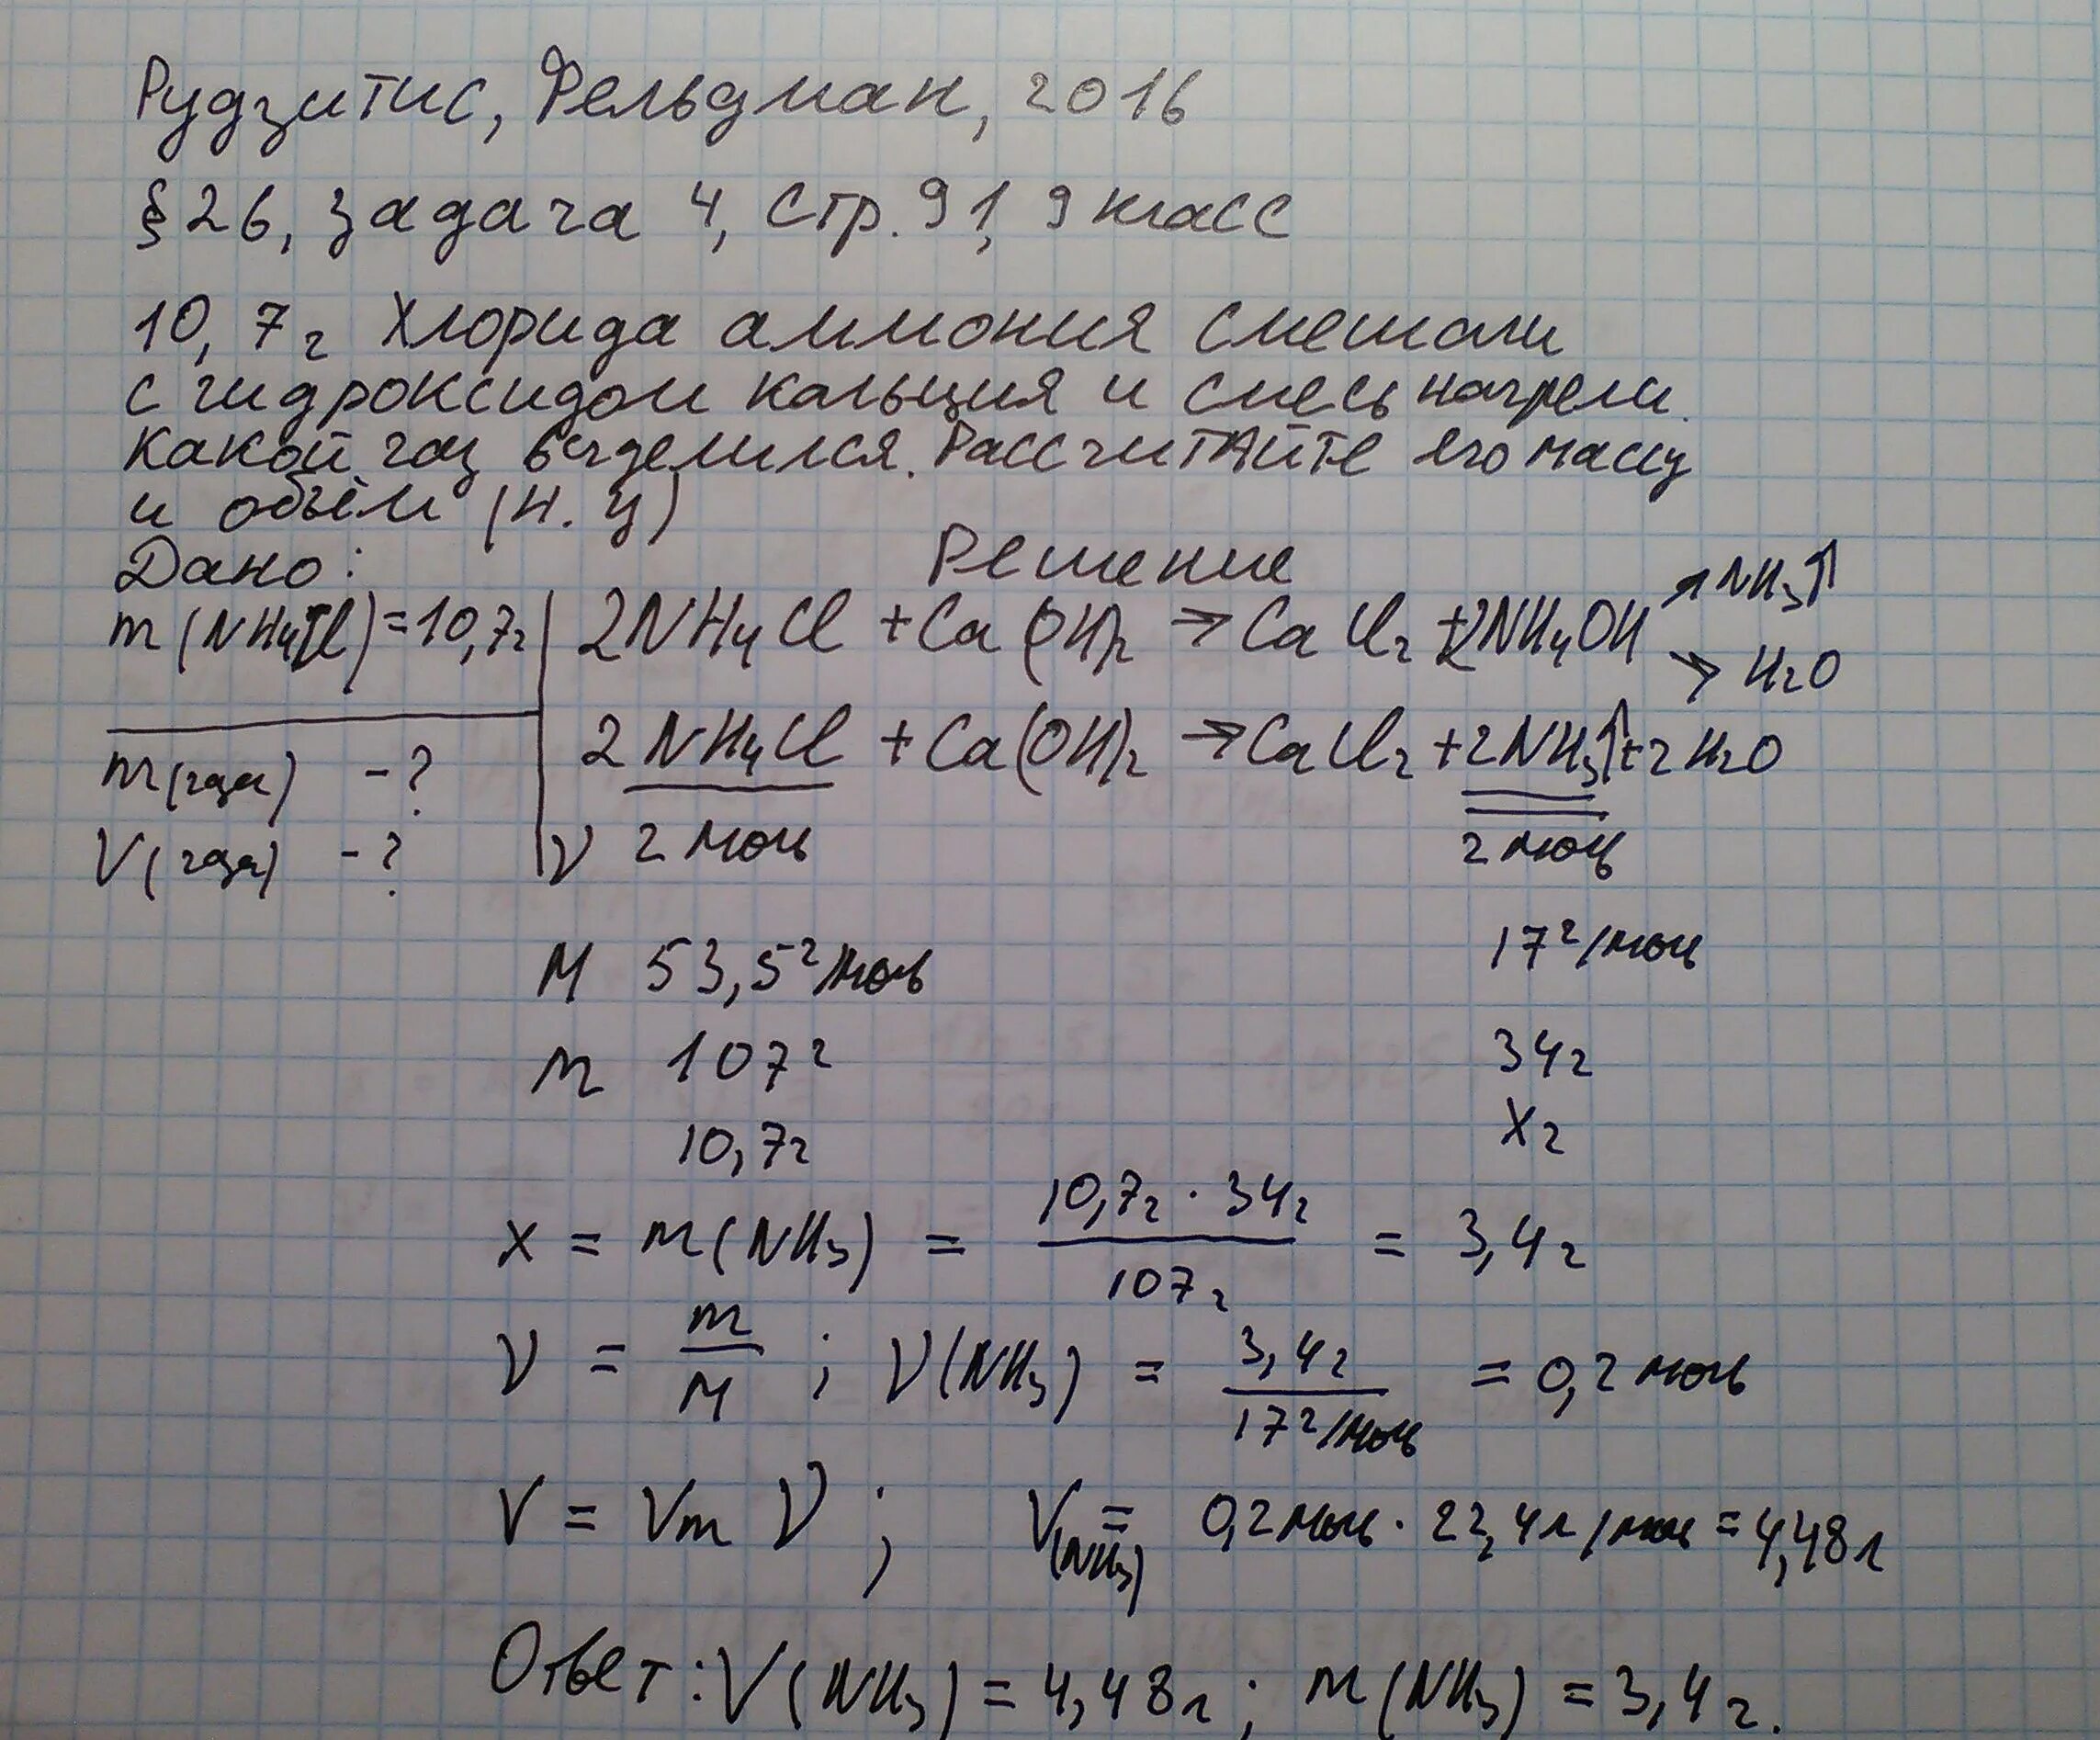 Рудзитис, Фельдман, 2016
§26, задача 4, стр. 91, 9 класс
10,7г хлорида аммония смешали
с гидроксидом кальция и смесь нагрели.
Какой газ выделился. Рассчитайте его массу
и объём (н.у)
Дано: Решение
m(NH₄Cl)=10,7г 2NH₄Cl + Ca(OH)₂ → CaCl₂ + 2NH₄OH ↗NH₃↑
→ H₂O
m(газа) - ? 2NH₄Cl + Ca(OH)₂ → CaCl₂ + 2NH₃↑ + 2H₂O
V(газа) - ? ν 2 моль 2 моль
M 53,5 г/моль 17 г/моль
m 107г 34г
10,7г Xг
x = m(NH₃) = 10,7г · 34г / 107г = 3,4г
ν = m/M ; ν(NH₃) = 3,4г / 17г/моль = 0,2 моль
V = Vm ν ; V(NH₃) = 0,2 моль · 22,4л/моль = 4,48л
Ответ: V(NH₃) = 4,48л ; m(NH₃) = 3,4г.